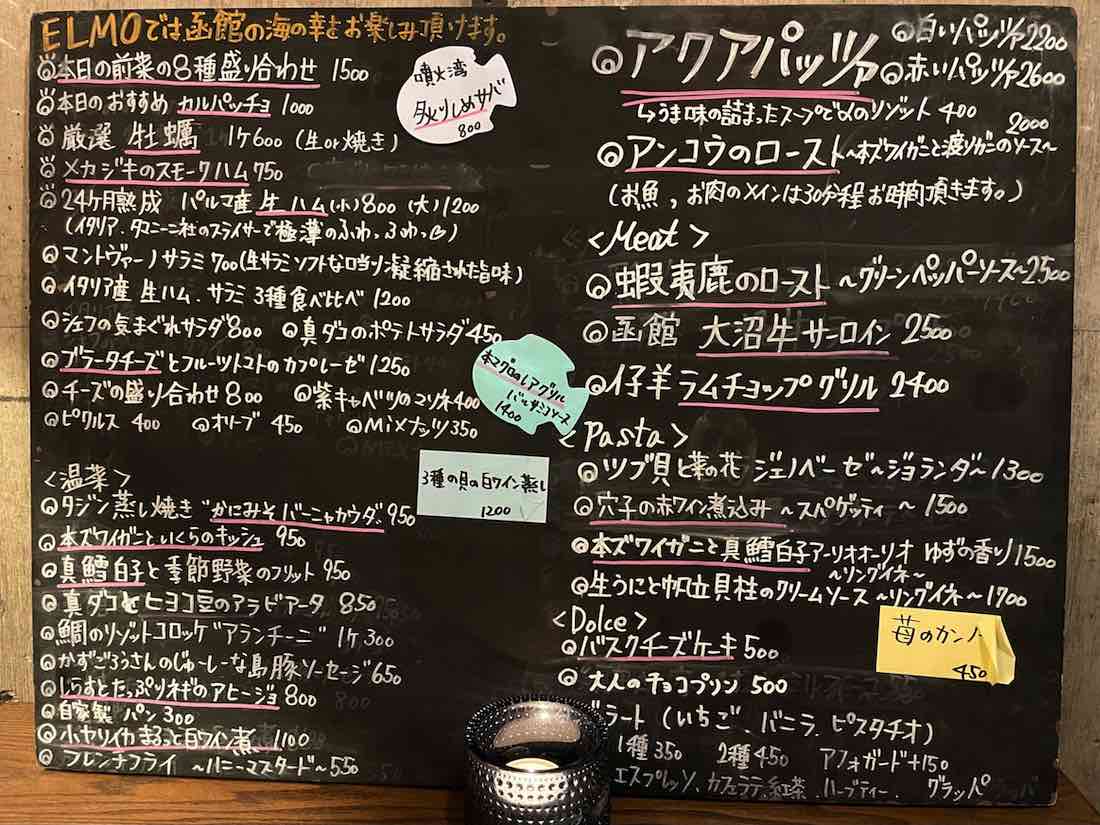 ELMOでは函館の海の幸をお楽しみ頂けます。
本日の前菜の8種盛り合わせ 1500
本日のおすすめ カルパッチョ 1000
厳選 牡蠣 1ケ600 (生or焼き)
メカジキのスモークハム 750
24ケ月熟成 パルマ産 生ハム (小)800 (大)1200
(イタリア.タニーニ社のスライサーで極薄のふわっふわっ)
マントヴァーノサラミ 700 (生サラミソフトな口当り凝縮された旨味)
イタリア産 生ハム.サラミ 3種食べ比べ 1200
シェフの気まぐれサラダ800 真ダコのポテトサラダ450
ブラータチーズとフルーツトマトのカプレーゼ 1250
チーズの盛り合わせ 800 紫キャベツのマリネ400
ピクルス 400 オリーブ 450 Mixナッツ350
噴火湾
炙りしめサバ
800
本マグロのレアグリル
バルサミコソース
1400
3種の貝の白ワイン蒸し
1200
<温菜>
タジン蒸し焼き"かにみそバーニャカウダ" 950
本ズワイガニといくらのキッシュ 950
真鱈白子と季節野菜のフリット 950
真ダコとヒヨコ豆のアラビアータ 850
鯛のリゾットコロッケ"アランチーニ" 1ケ300
かずごろうさんのじゅーしーな島豚ソーセージ 650
しらすとたっぷりネギのアヒージョ 800
自家製 パン 300
小ヤリイカ まるっと白ワイン煮 1100
フレンチフライ ～ハニーマスタード～ 550
アクアパッツァ
白いパッツァ2200
赤いパッツァ2600
↳うま味の詰まったスープで〆のリゾット 400
2000
アンコウのロースト～本ズワイガニと渡りガニのソース～
(お魚,お肉のメインは30分程お時間頂きます。)
<Meat>
蝦夷鹿のロースト ～グリーンペッパーソース～2500
函館 大沼牛サーロイン 2500
仔羊 ラムチョップグリル 2400
<Pasta>
ツブ貝と菜の花 ジェノベーゼ～ジョランダ～ 1300
穴子の赤ワイン煮込み ～スパゲッティ～ 1500
本ズワイガニと真鱈白子アーリオオーリオ ゆずの香り1500
～リングイネ～
生うにと帆立貝柱のクリームソース～リングイネ～1700
<Dolce>
バスクチーズケーキ 500
大人のチョコプリン 500
苺のカン
450
ラート (いちご.バニラ.ピスタチオ)
1種350 2種450 アフォガード+150
エスプレッソ.カフェラテ.紅茶.ハーブティー. グラッパ